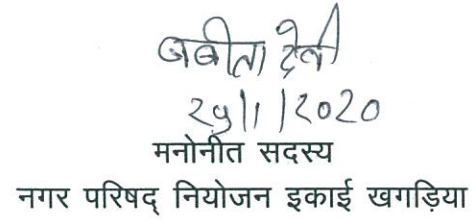 बबीता देवी
29/1/2020
मनोनीत सदस्य
नगर परिषद् नियोजन इकाई खगड़िया